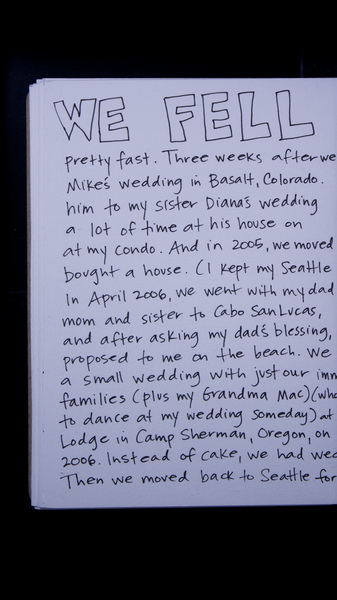 WE FELL
pretty fast. Three weeks after we
Mike's wedding in Basalt, Colorado.
him to my sister Diana's wedding
a lot of time at his house on
at my condo. And in 2005, we moved
bought a house. (I kept my Seattle
In April 2006, we went with my dad
mom and sister to Cabo San Lucas,
and after asking my dad's blessing,
proposed to me on the beach. We
a small wedding with just our imm
families (plus my Grandma Mac)(who
to dance at my wedding someday) at
Lodge in Camp Sherman, Oregon, on
2006. Instead of cake, we had wed
Then we moved back to Seattle for